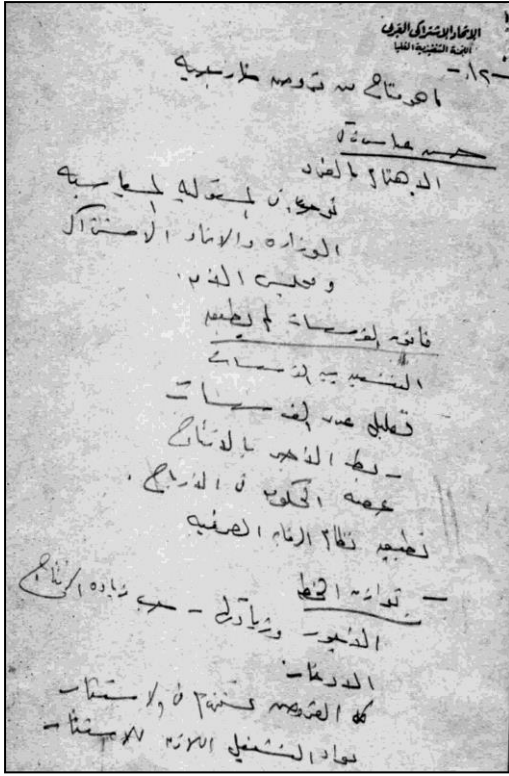 الاتحاد الاشتراكى العربى
اللجنة التنفيذية العليا
-١٢-
ما هو متاح من قروض خارجية
حسن عباس
الاهتمام بالفرد
المسئولية السياسية
الوزارة والاتحاد الاشتراكى
ومجلس الأمة.
قانون المؤسسات لم يطبق
التنسيق بين المؤسسات
تقليل عدد المؤسسات
- ربط الأجر بالانتاج
حصة الحكومة فى الأرباح.
تطبيق نظام الرقابة
- توازن الخطة
الأجور وزيادتها - سبب زيادة الانتاج
الادخار
كل القروض تستخدم فى الاستثمارات
مواد التشغيل اللازمة للاستثمارات